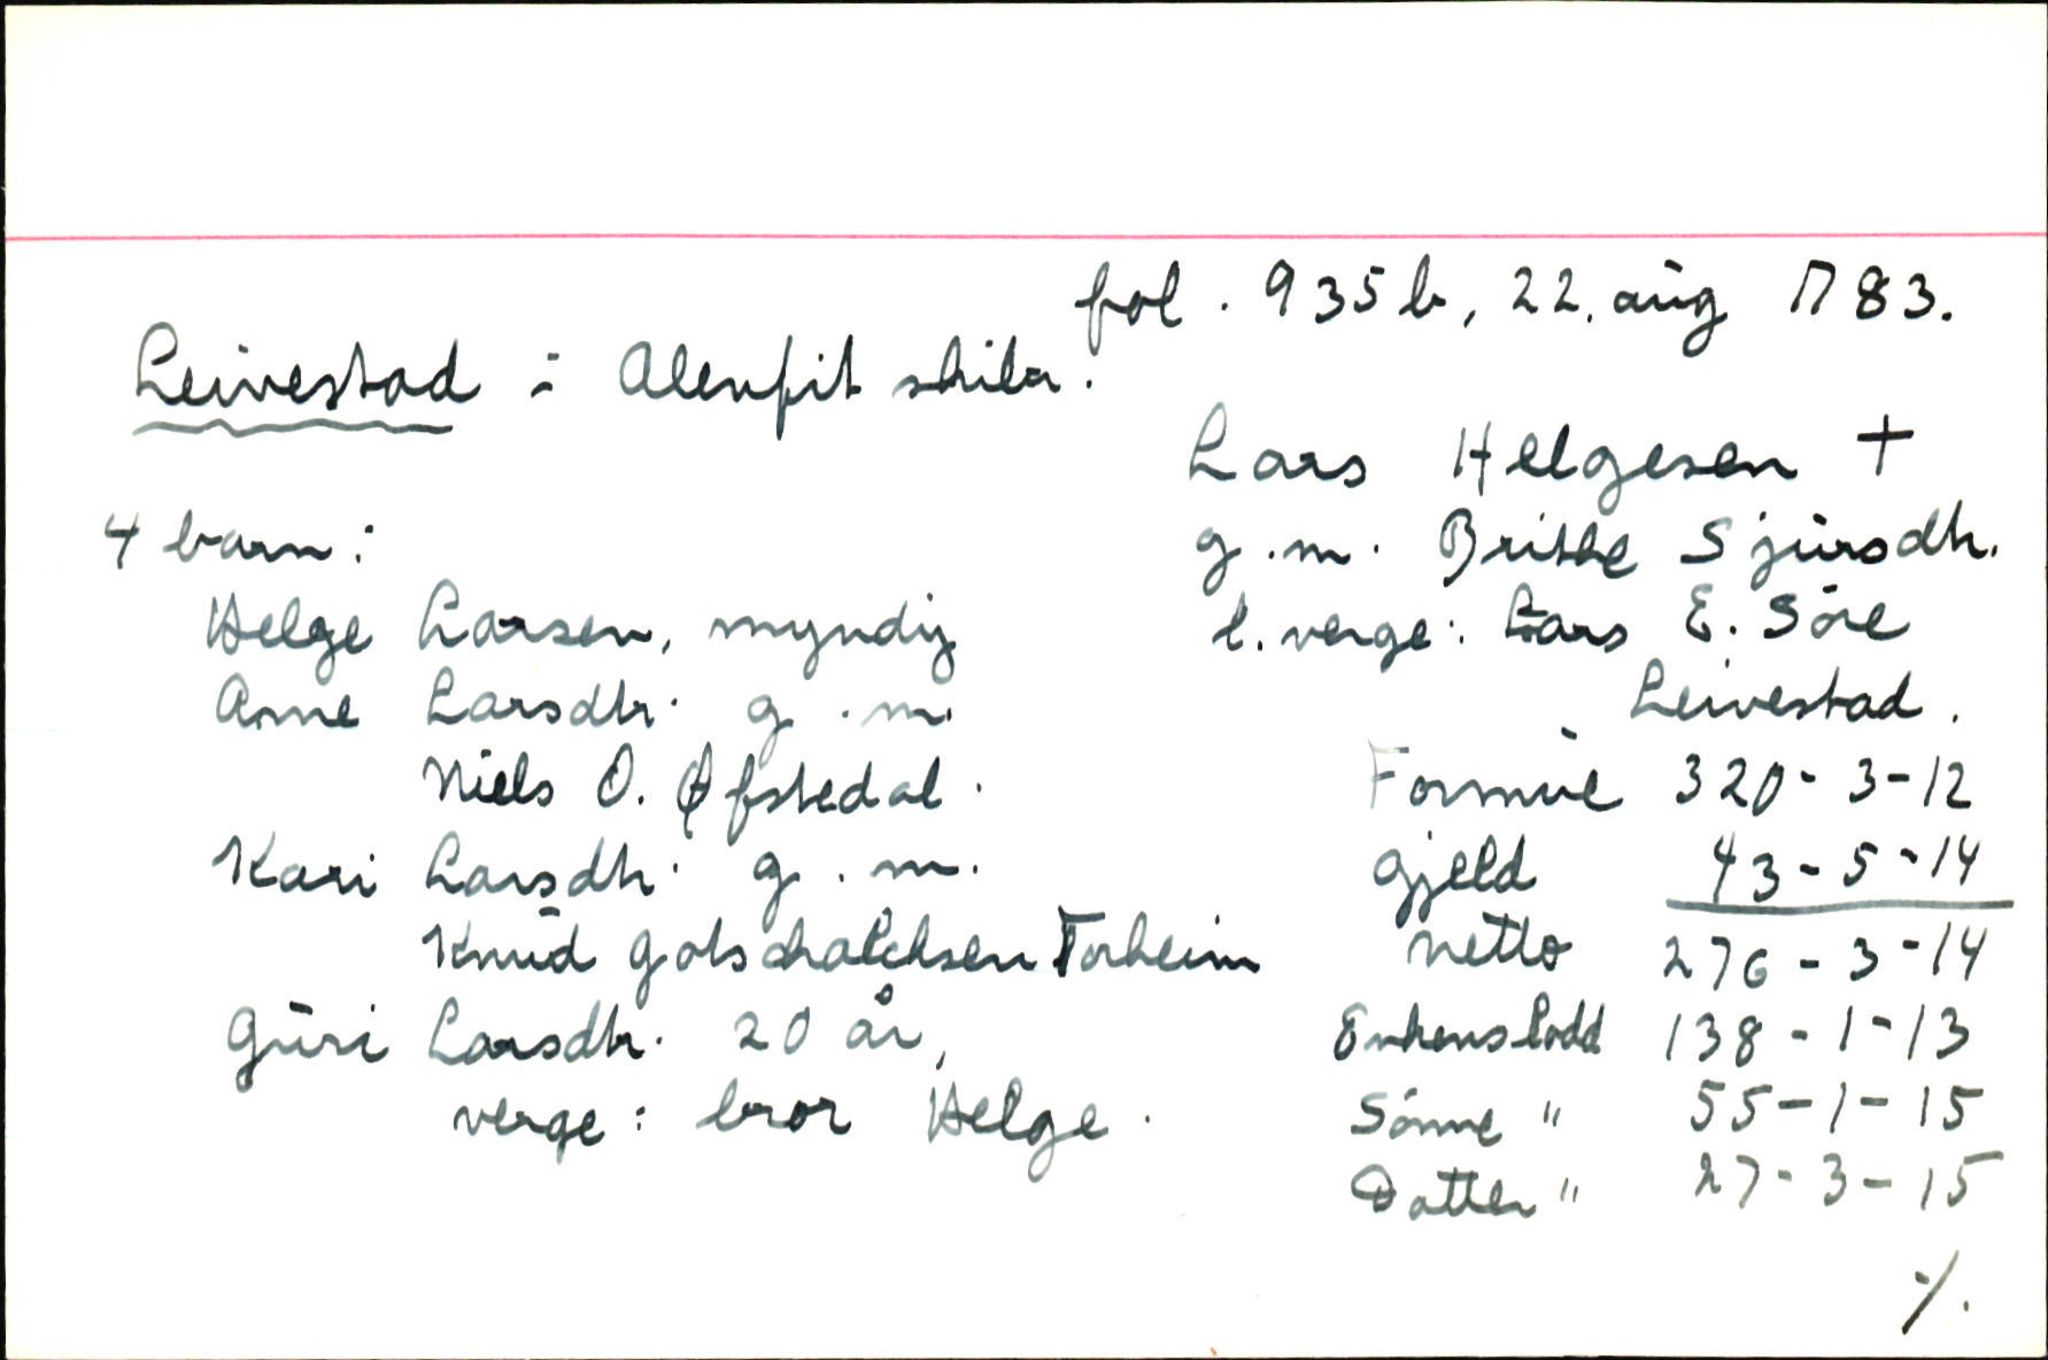 fol. 935 b, 22. aug 1783.
Leivestad i Alenfit skibr.
Lars Helgesen +
g.m. Brithe Sjursdtr.
l. verge: Lars E. Söre
Leivestad.
4 barn:
Helge Larsen, myndig
Anne Larsdtr. g.m.
Niels O. Øfstedal.
Kari Larsdtr. g.m.
Knud Gotschalchsen Forheim
Guri Larsdtr. 20 år,
verge: bror Helge.
Formue 320 - 3 - 12
Gjeld 43 - 5 - 14
Netto 276 - 3 - 14
Enkens lodd 138 - 1 - 13
Sönne " 55 - 1 - 15
Datter " 27 - 3 - 15
·/.